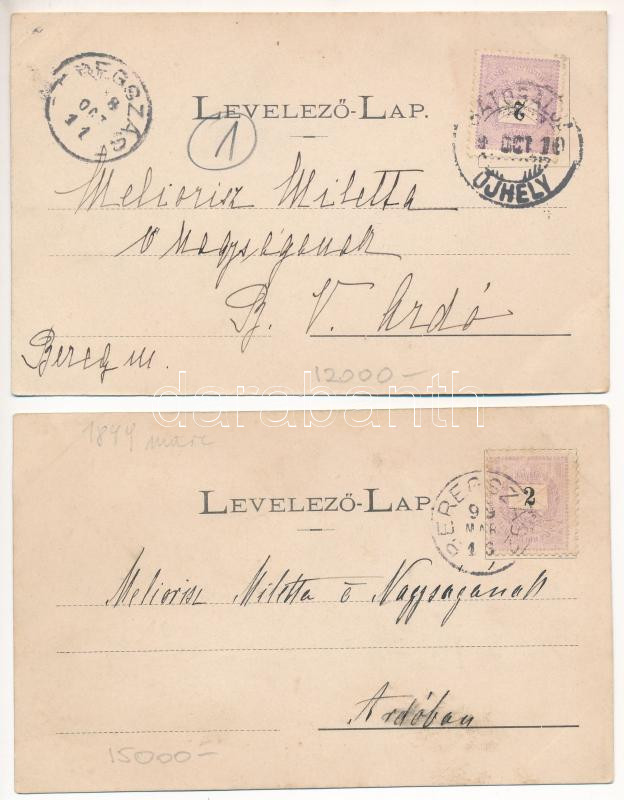 BEREGSZÁSZ
OCT
11
LEVELEZŐ-LAP.
1
2
OCT. 10
ÚJHELY
Meliorisz Miletta
ő Nagyságának
B. V. Ardó
Bereg m.
12000-
darabanth
1899 marc
LEVELEZŐ-LAP.
2
BEREGSZÁSZ
99
MAR
16
Meliorisz Miletta ő Nagyságának
Ardóban
15000-